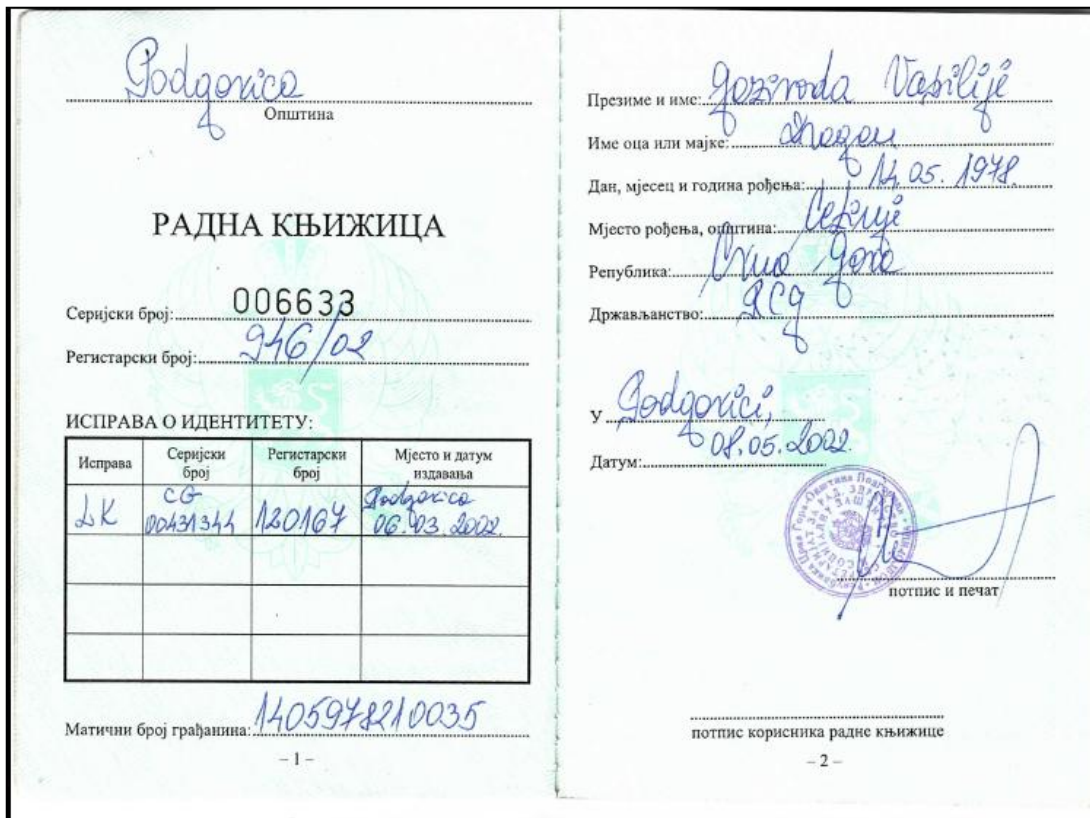 Podgorica
Општина
РАДНА КЊИЖИЦА
Серијски број: 006633
Регистарски број: 946/02
ИСПРАВА О ИДЕНТИТЕТУ:
Исправа Серијски број Регистарски број Мјесто и датум издавања
LK CG 00431344 120167 Podgorica 06.03.2002.
Матични број грађанина: 1405978210035
– 1 –
Презиме и име: Gozivoda Vasilije
Име оца или мајке: Dragan
Дан, мјесец и година рођења: 14.05.1978.
Мјесто рођења, општина: Cetinje
Република: Crna Gora
Држављанство:
У Podgorici,
Датум: 08.05.2002.
потпис и печат
потпис корисника радне књижице
– 2 –